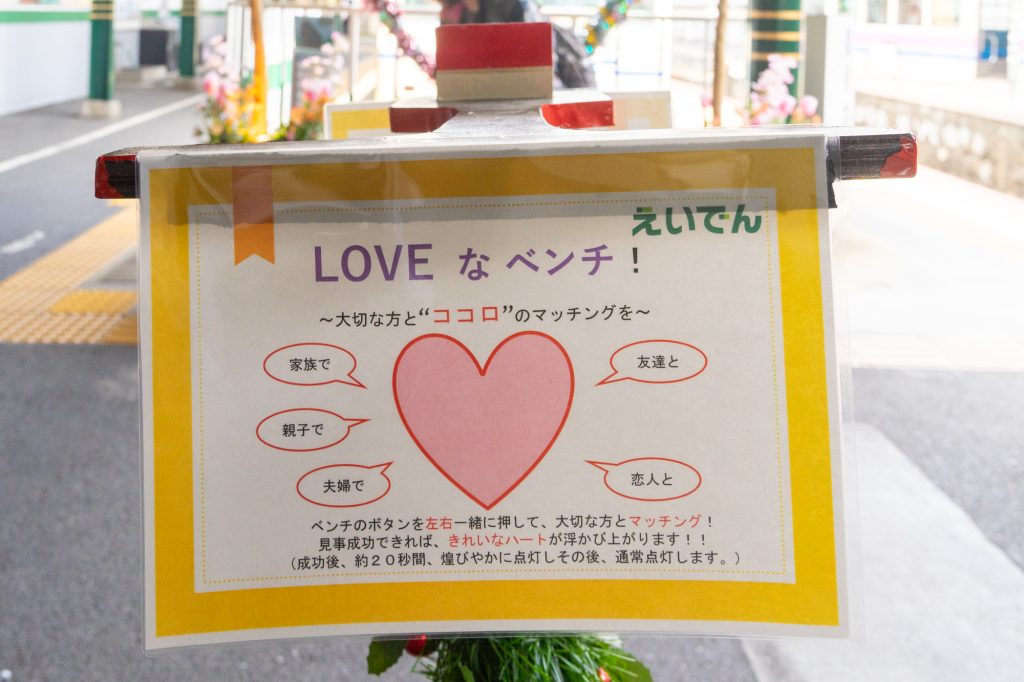 えいでん
LOVE な ベンチ！
～大切な方と“ココロ”のマッチングを～
家族で
友達と
親子で
夫婦で
恋人と
ベンチのボタンを左右一緒に押して、大切な方とマッチング！
見事成功できれば、きれいなハートが浮かび上がります！！
（成功後、約２０秒間、煌びやかに点灯しその後、通常点灯します。）